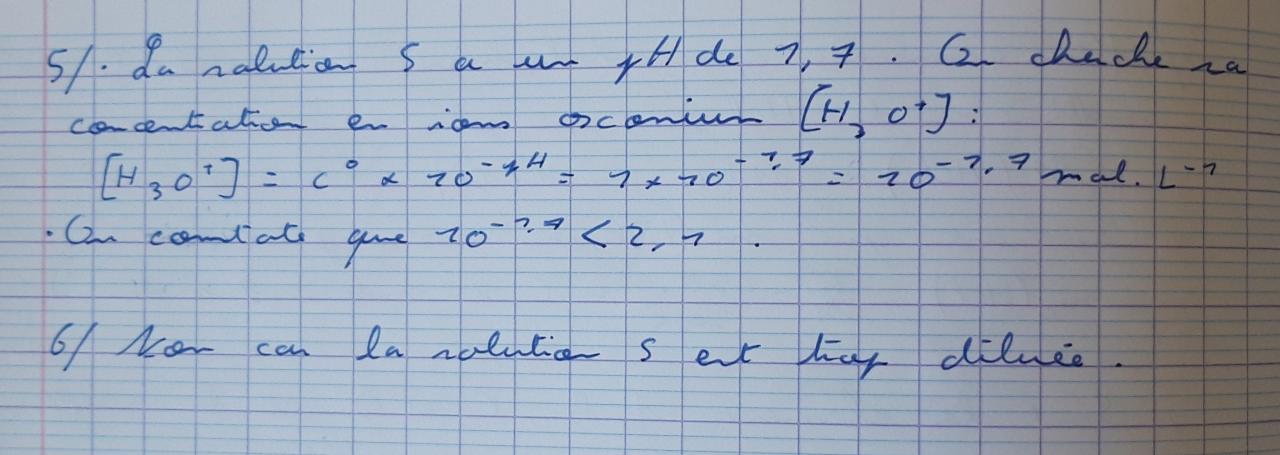 5/. La solution S a un pH de 1,7. On cherche sa
concentration en ions oxonium [H₃O⁺] :
[H₃O⁺] = c° × 10⁻ᵖᴴ = 1 × 10⁻¹·⁷ = 10⁻¹·⁷ mol.L⁻¹
. On constate que 10⁻¹·⁷ < 2,1 .
6/ Non car la solution S est trop diluée.